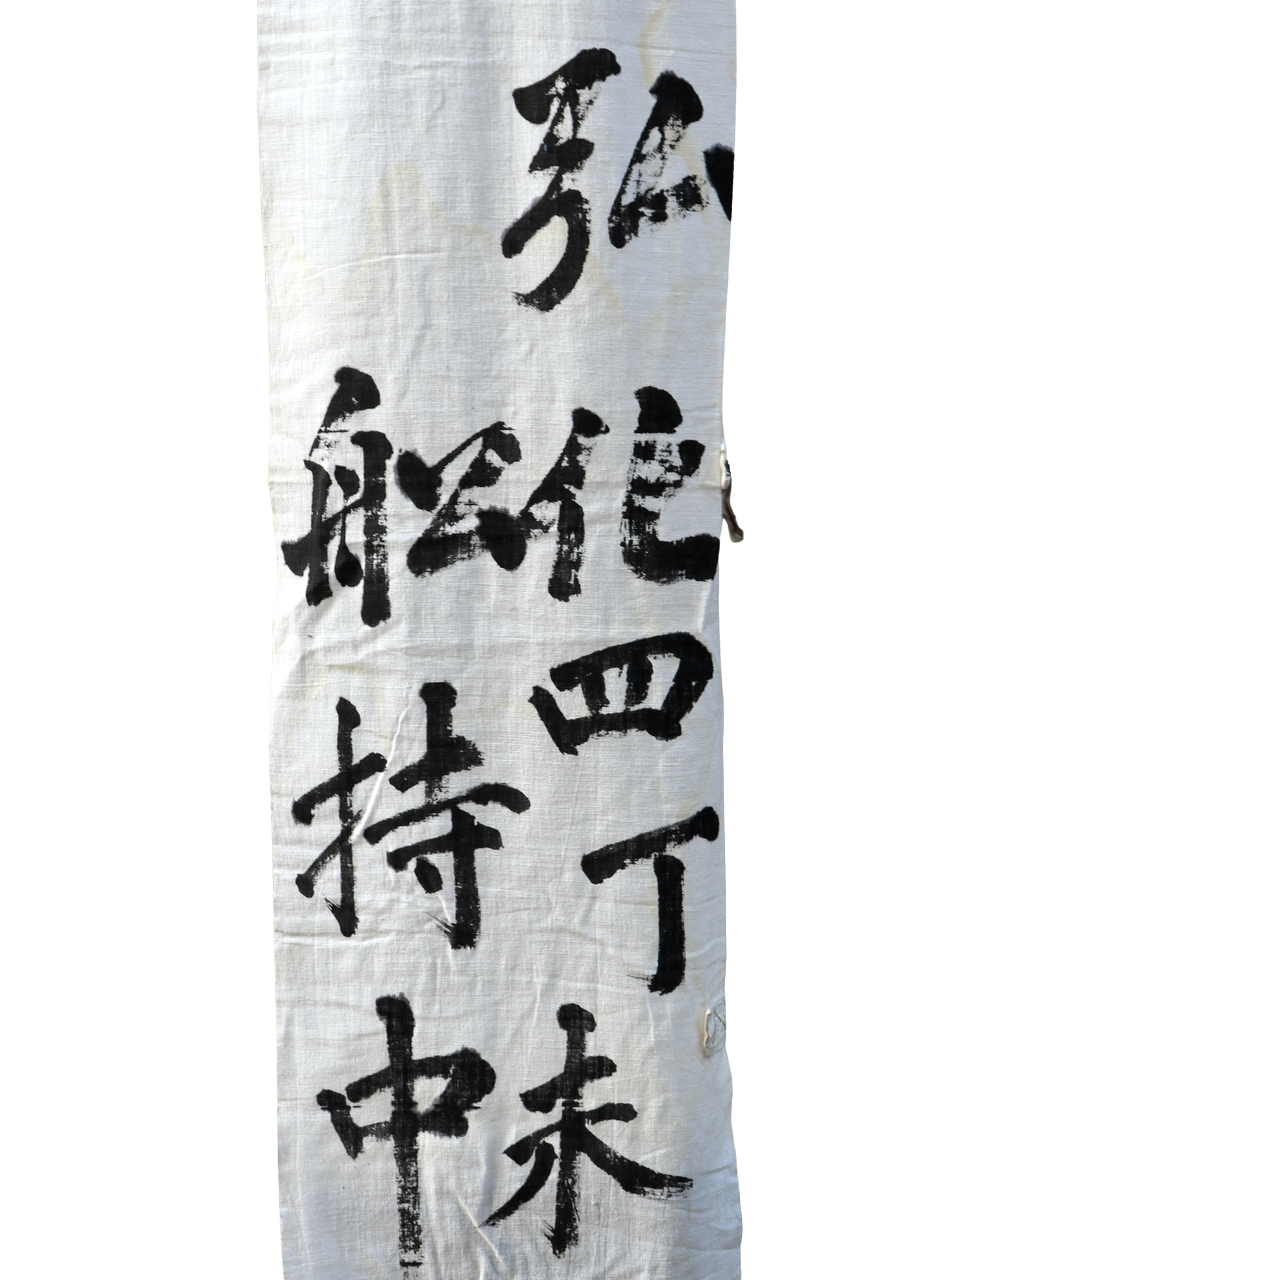 弘化四丁未
船持中